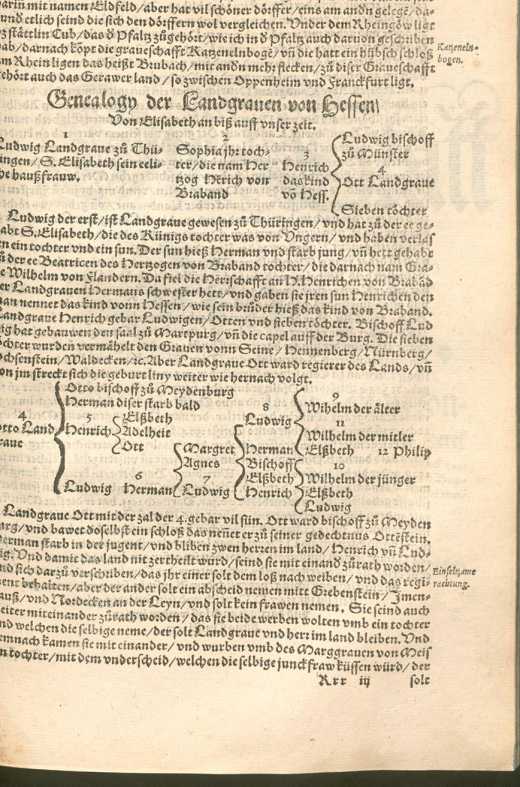 darin mit namen Eldfeld/ aber hat vil schöner dörffer/ eins am andn gelegē/ da-
und etlich seind die sich den dörffern wol vergleichen. Vnder dem Rheingöw ligt
stättlin Cub/ das ď Pfaltz zůgehört/ wie ich in ď Pfaltz auch daruon geschriben
hab/ darnach köpt die graueschafft Katzenelnbogē/ vñ die hatt ein hübsch schloß
am Rhein ligen das heißt Brubach/ mit andn mehr flecken/ zů diser Graueschafft
gehört auch das Gerawer land/ so zwischen Oppenheim vnd Franckfurt ligt.
Katzeneln-
bogen.
Genealogy der Landgrauen von Hessen/
Von Elisabeth an biß auff vnser zeit.
1
Ludwig Landgraue zů Thü-
ringen/ S. Elisabeth sein eeli-
che haußfrauw.
2
Sophia jhr toch-
ter/ die nam Her
tzog Hērich von
Braband
3
Henrich
das kind
vō Hess.
Ludwig bischoff
zů Münster
4
Ott Landgraue
Sieben töchter
Ludwig der erst/ ist Landgraue gewesen zů Thüringen/ vnd hat zů der ee ge-
habt S. Elisabeth/ die des Künigs tochter was von Vngern/ vnd haben verlas
ein tochter vnd ein sun. Der sun hieß Herman vnd starb jung/ vñ hett gehabt
zů der ee Beatricen des Hertzogen von Braband tochter/ die darnach nam Gra-
ue Wilhelm von Flandern. Da fiel die Herrschafft an H. Henrichen von Brabād
der Landgrauen Hermans schwester hett/ vnd gaben sie jren sun Henrichen den
man nennet das kind vonn Hessen/ wie sein brůder hieß das kind von Braband.
Landgraue Henrich gebar Ludwigen/ Otten vnd sieben töchter. Bischoff Lud
wig hat gebauwen den saal zů Martpurg/ vñ die capel auff der Burg. Die sieben
töchter wurden vermählet den Grauen vonn Seine/ Hennenberg/ Nürnberg/
Ochsenstein/ Waldecken/ ꝛc. Aber Landgraue Ott ward regierer des Lands/ vñ
von jm streckt sich die geburt liny weiter wie hernach volgt.
4
Otto Land
graue
Otto bischoff zů Meydenburg
Herman diser starb bald
5
Henrich
Elßbeth
Adelheit
Ott
6
Ludwig Herman
Margret
Agnes
7
Ludwig
8
Ludwig
Herman
Bischoff
Elßbeth
Henrich
9
Wihelm der älter
11
Wilhelm der mitler
Elßbeth 12 Philip
10
Wilhelm der jünger
Elßbeth
Ludwig
Landgraue Ott mit der zal der 4. gebar vil sün. Ott ward bischoff zů Meyden
burg/ vnd bawet doselbst ein schloß das nenet er zů seiner gedechtnus Ottēstein.
Herman starb in der jugent/ vnd bliben zwen herren im land/ Henrich vñ Lud-
wig. Vnd damit das land nit zertheilt würd/ seind sie mit einand zůrath worden/
vnd sich darzů verschriben/ das jhr einer solt dem loß nach weiben/ vnd das regi-
ment behalten/ aber der ander solt ein abscheid nemen mitt Grebenstein/ Jmen-
hauß/ vnd Nordecken an der Leyn/ vnd solt kein frawen nemen. Sie seind auch
weiter mit einander zůrath worden/ das sie beide werben wolten vmb ein tochter
vnd welchen die selbige neme/ der solt Landgraue vnd herr im land bleiben. Vnd
demnach kamen sie mit einander/ vnd wurben vmb des Marggrauen von Meis
sen tochter/ mit dem vnderscheid/ welchen die selbige junckfraw küssen würd/ der
rachtung.
Rrr iij solt